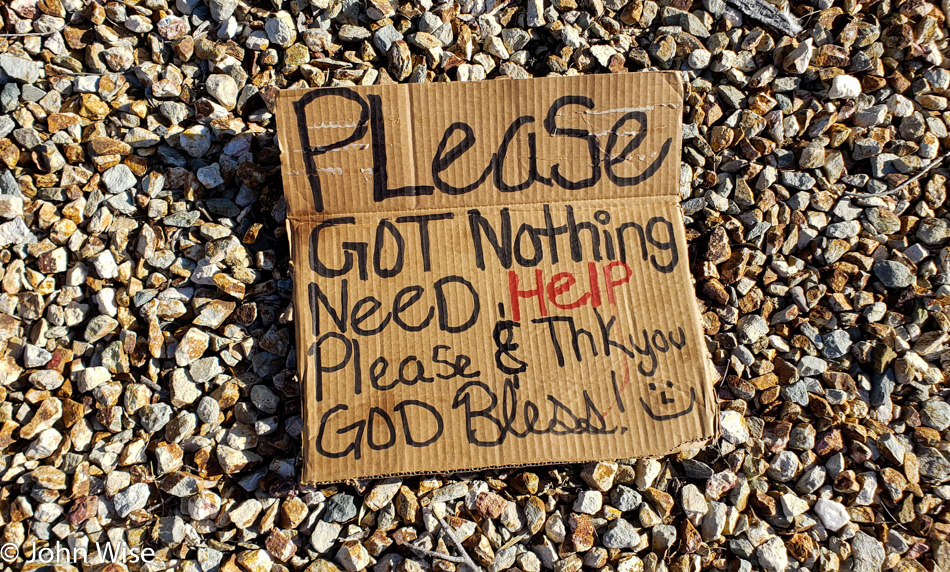 PLease
GOT Nothing
NeeD, HelP
Please & Thkyou
GOD Bless!
© John Wise